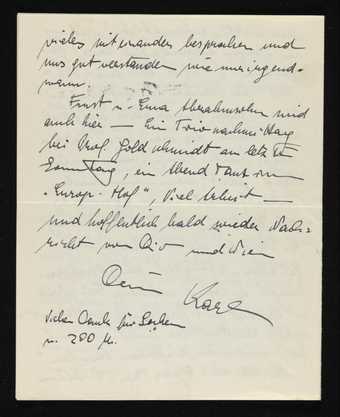 vieles miteinander besprochen und
uns gut verstanden wie nur irgend-
wann.
Ernst u. Erna Abrahamsohn sind
auch hier — Ein Trio nachmittag
bei Prof. Goldschmidt am letzten
Sonntag, ein Abend Tanz im
"Europ. Hof", viel
und hoffentlich bald wieder Nach=
richt von Dir und Wien
Dein
Karl
Vielen Dank für
u. 200 M.